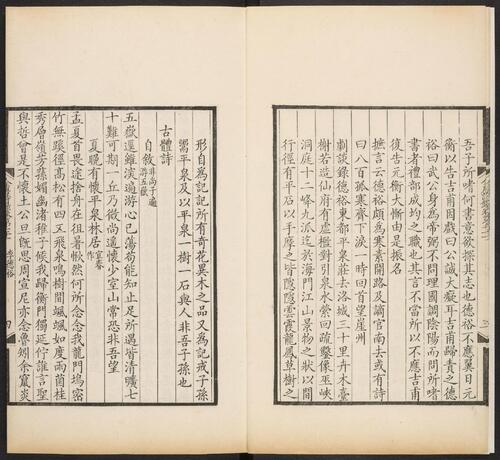 吾子所嗜何書意欲探其志也德裕不應翼日元
衡以告吉甫因戲曰公誠大癡耳吉甫歸責之德
裕曰武公身為帝弼不問理國調陰陽而問所嗜
書者禮部成均之職也其言不當所以不應吉甫
復告元衡大慚由是振名
摭言云德裕頗為寒素開路及謫官南去或有詩
曰八百孤寒齊下淚一時回首望崖州
劇談錄德裕東都平泉莊去洛城三十里卉木臺
榭若造仙府有虛檻對引泉水縈回疏鑿像巫峽
洞庭十二峰九派迄於海門江山景物之狀以間
行徑有平石以手摩之皆隱隱雲霞龍鳳草樹之
形自為記記所有奇花異木之品又為記戒子孫
鬻平泉及以平泉一樹一石與人非吾子孫也
古體詩
自敘 非尚子遍游五嶽
五嶽逕雖深遍游心已蕩苟能知止足所遇皆清曠七
十難可期一丘乃微尚遙懷少室山常恐非吾望
夏晚有懷平泉林居 宜春作
孟夏守畏途捨舟在徂暑愀然何所念念我龍門塢密
竹無蹊徑高松有四五飛泉鳴樹間颯颯如度雨菌桂
秀層嶺芳蓀媚幽渚稚子候我歸衡門獨延佇誰言聖
與哲曾是不懷土公旦既思周宣尼亦念魯矧余竄炎